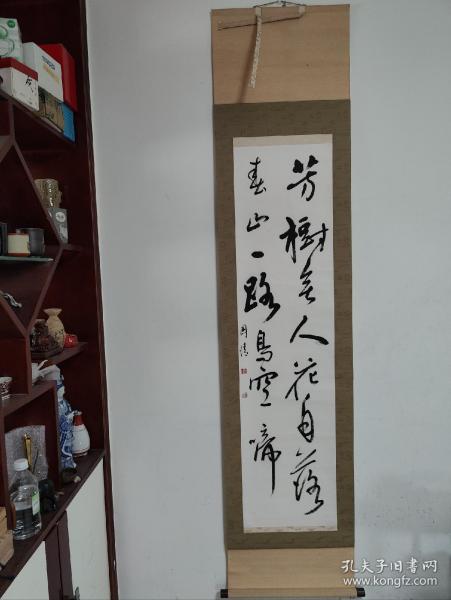 芳樹無人花自落
春山一路鳥空啼
孔夫子旧书网
www.kongfz.com